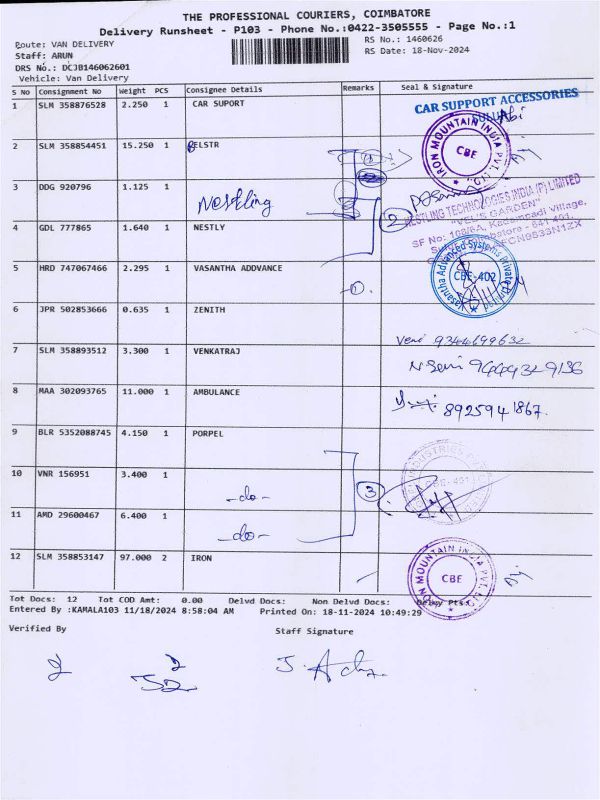 THE PROFESSIONAL COURIERS, COIMBATORE
Delivery Runsheet - P103 - Phone No.:0422-3505555 - Page No.:1
Route: VAN DELIVERY
RS No.: 1460626
Staff: ARUN
RS Date: 18-Nov-2024
DRS No.: DCJB146062601
Vehicle: Van Delivery
S No Consignment No Weight PCS Consignee Details Remarks Seal & Signature
1 SLM 358876528 2.250 1 CAR SUPORT
CAR SUPPORT ACCESSORIES
SULUR
2 SLM 358854451 15.250 1 BELSTR
IRON MOUNTAIN INDIA PVT. LTD. CBE
3 DDG 920796 1.125 1 Nestling
2
NESTLING TECHNOLOGIES INDIA (P) LIMITED
"VEL'S GARDEN"
SF No: 108/6A, Kadampadi Village,
Coimbatore - 641 401.
4 GDL 777865 1.640 1 NESTLY
5 HRD 747067466 2.295 1 VASANTHA ADDVANCE
1
Vasantha Advanced Systems Private Limited CBE-402
6 JPR 502853666 0.635 1 ZENITH
9344699632
7 SLM 358893512 3.300 1 VENKATRAJ
9444329136
8 MAA 302093765 11.000 1 AMBULANCE
8925941867.
9 BLR 5352088745 4.150 1 PORPEL
10 VNR 156951 3.400 1 -do-
3
INDUSTRIES CBE-401
11 AMD 29600467 6.400 1 -do-
12 SLM 358853147 97.000 2 IRON
IRON MOUNTAIN INDIA PVT. CBE
Tot Docs: 12 Tot COD Amt: 0.00 Delvd Docs: Non Delvd Docs: Delvy Pts:
Entered By :KAMALA103 11/18/2024 8:58:04 AM Printed On: 18-11-2024 10:49:29
Verified By
Staff Signature